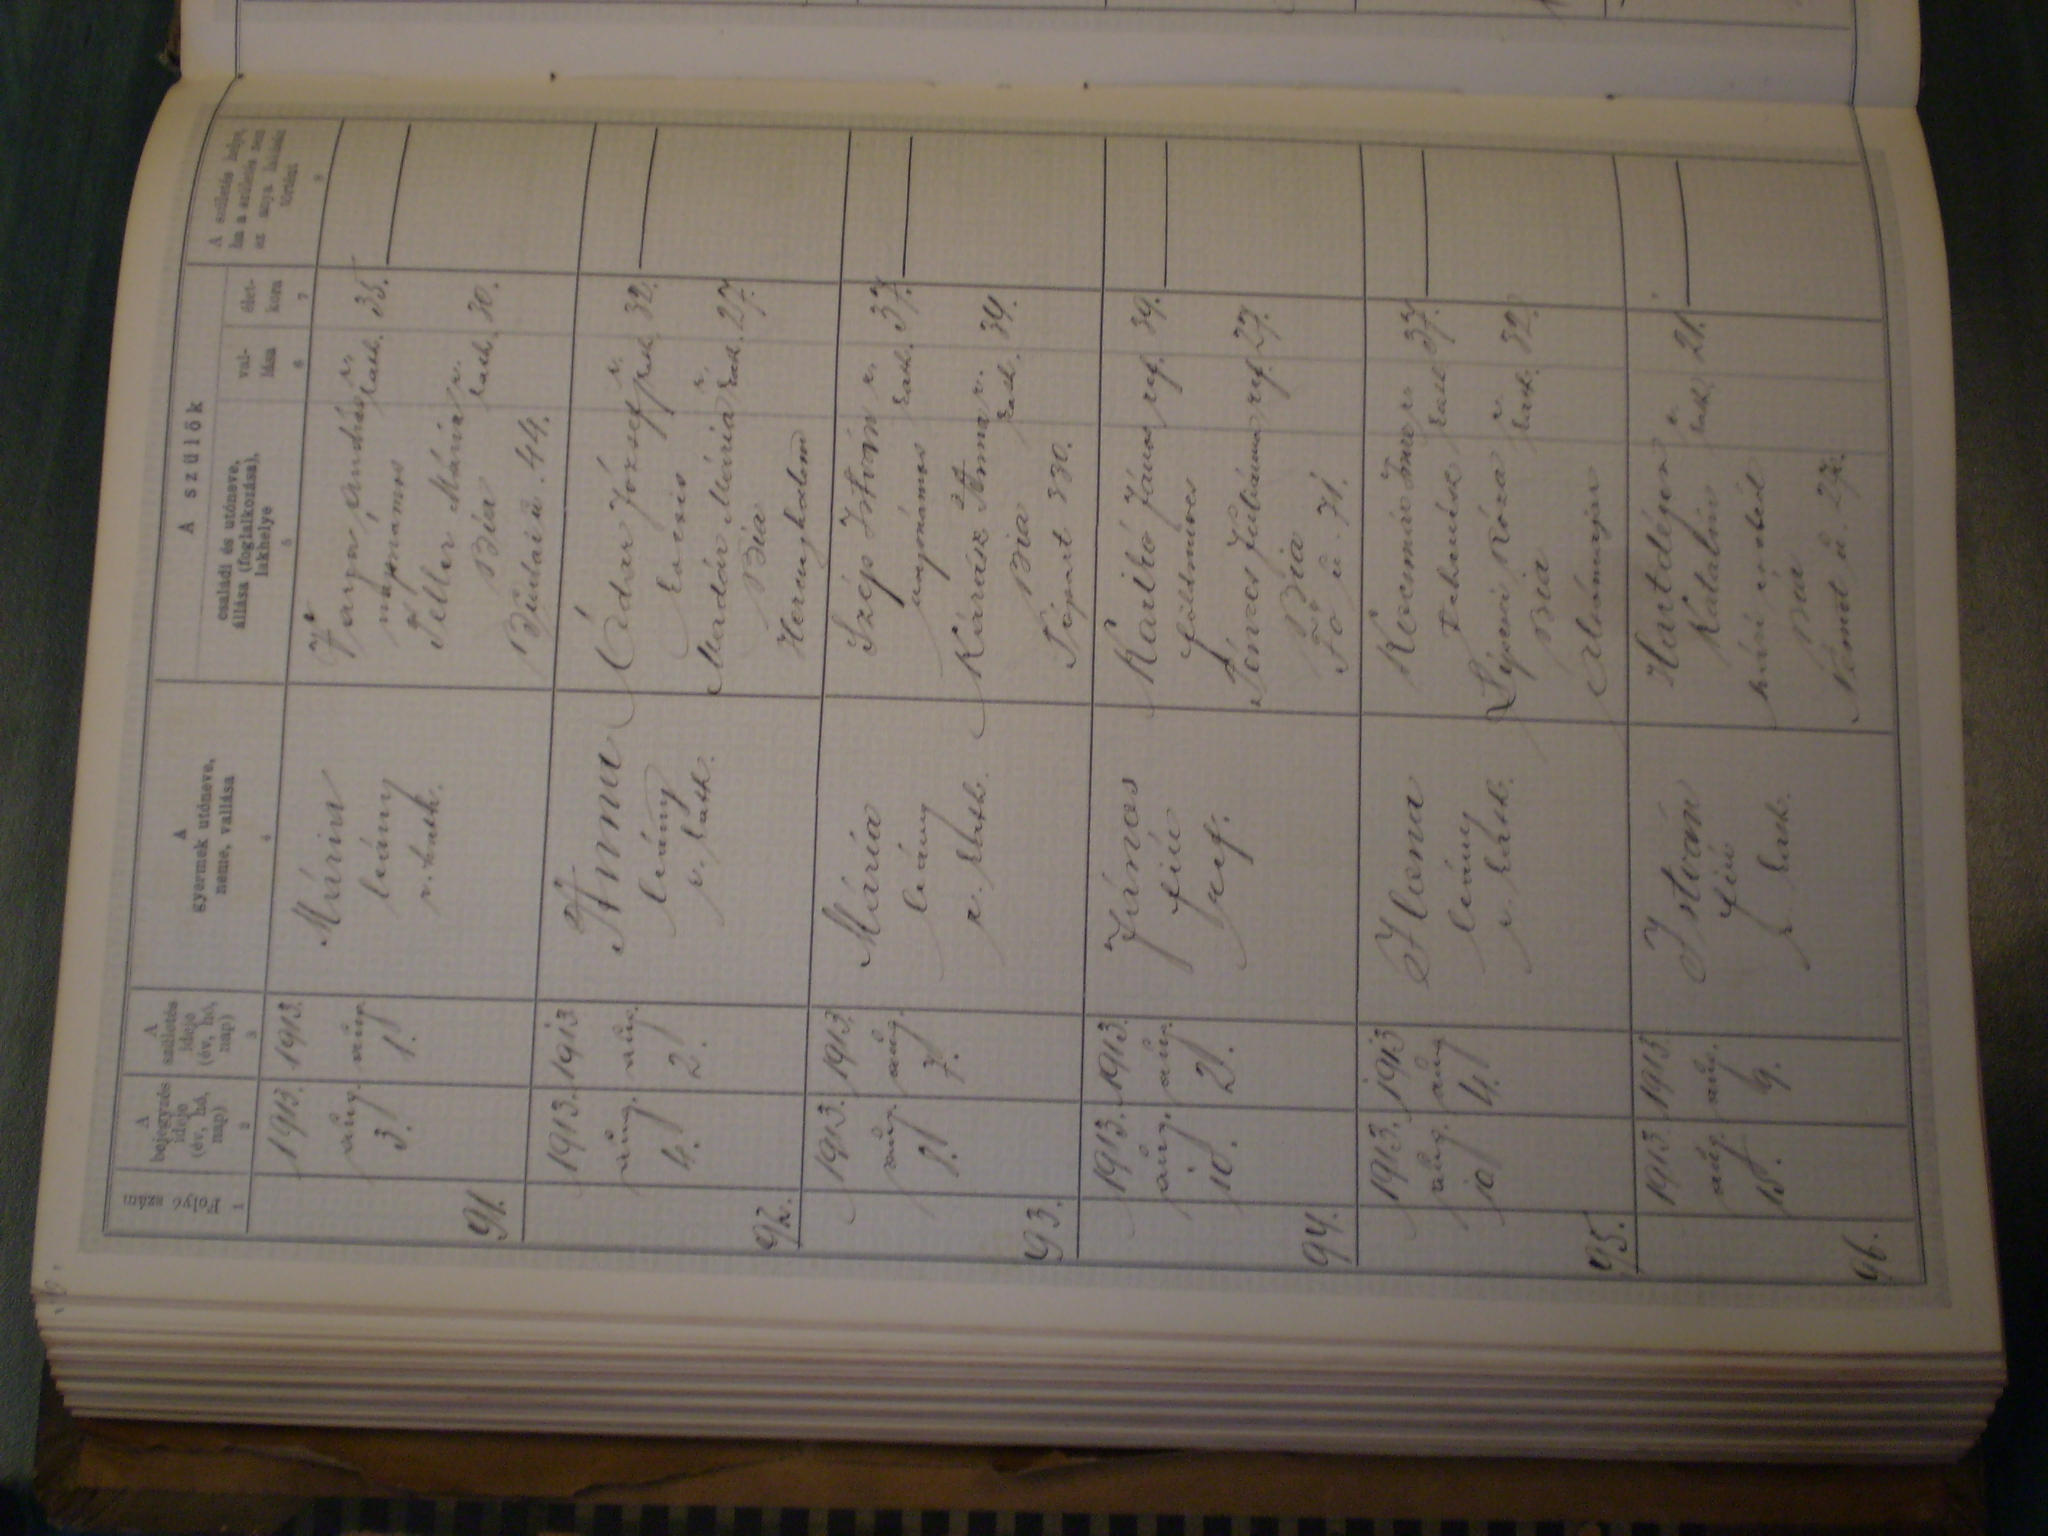 Folyó szám
1
A bejegyzés ideje (év, hó, nap)
2
A születés ideje (év, hó, nap)
3
A gyermek utóneve, neme, vallása
4
A szülők
családi és utóneve, állása (foglalkozása), lakhelye
5
val-lása
6
élet-kora
7
A születés helye, ha a születés nem az anya lakásán történt
8
91.
1913. aug. 3.
1913. aug. 1.
Mária
leány
r. kath.
Varga András r. kath. 35.
napszamos
Teller Mária r. kath. 30.
Bia
Budai u. 44.
92.
1913. aug. 4.
1913 aug. 2.
Anna
leány
r. kath.
József r. kath. 32.
kocsis
Madár Mária r. kath. 27.
Bia
93.
1913. aug. 8.
1913. aug. 7.
Mária
leány
r. kath.
Szép István r. kath. 37.
napszámos
Kárász Anna r. kath. 34.
Bia
330.
94.
1913. aug. 10.
1913. aug. 2.
János
fiú
ref.
Karikó János ref. 39.
földmíves
Julianna ref. 27.
Bia
Fő u. 71.
95.
1913. aug. 10
1913 aug. 4.
Ilona
leány
r. kath.
Kocsmár Imre r. kath 37.
Róza r. kath. 32.
Bia
96.
1913. aug. 15.
1913. aug. 9.
István
fiú
r. kath.
Hartdégen r. kath. 21.
Katalin
Bia
Német u. 27.